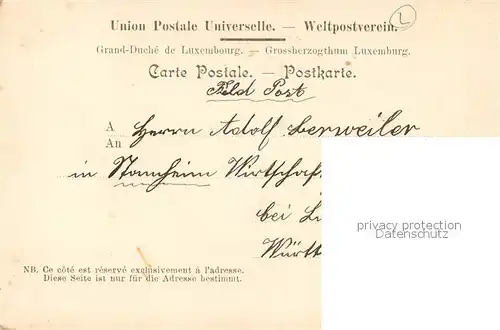 Union Postale Universelle. — Weltpostverein.
L
Grand-Duché de Luxembourg. — Grossherzogthum Luxemburg.
Carte Postale. — Postkarte.
Feld Post
A
An
Herrn Adolf Lerweiler
in Stammheim Wirtschaf
bei Li
Württ
privacy protection
Datenschutz
NB. Ce côté est réservé exclusivement à l'adresse.
Diese Seite ist nur für die Adresse bestimmt.